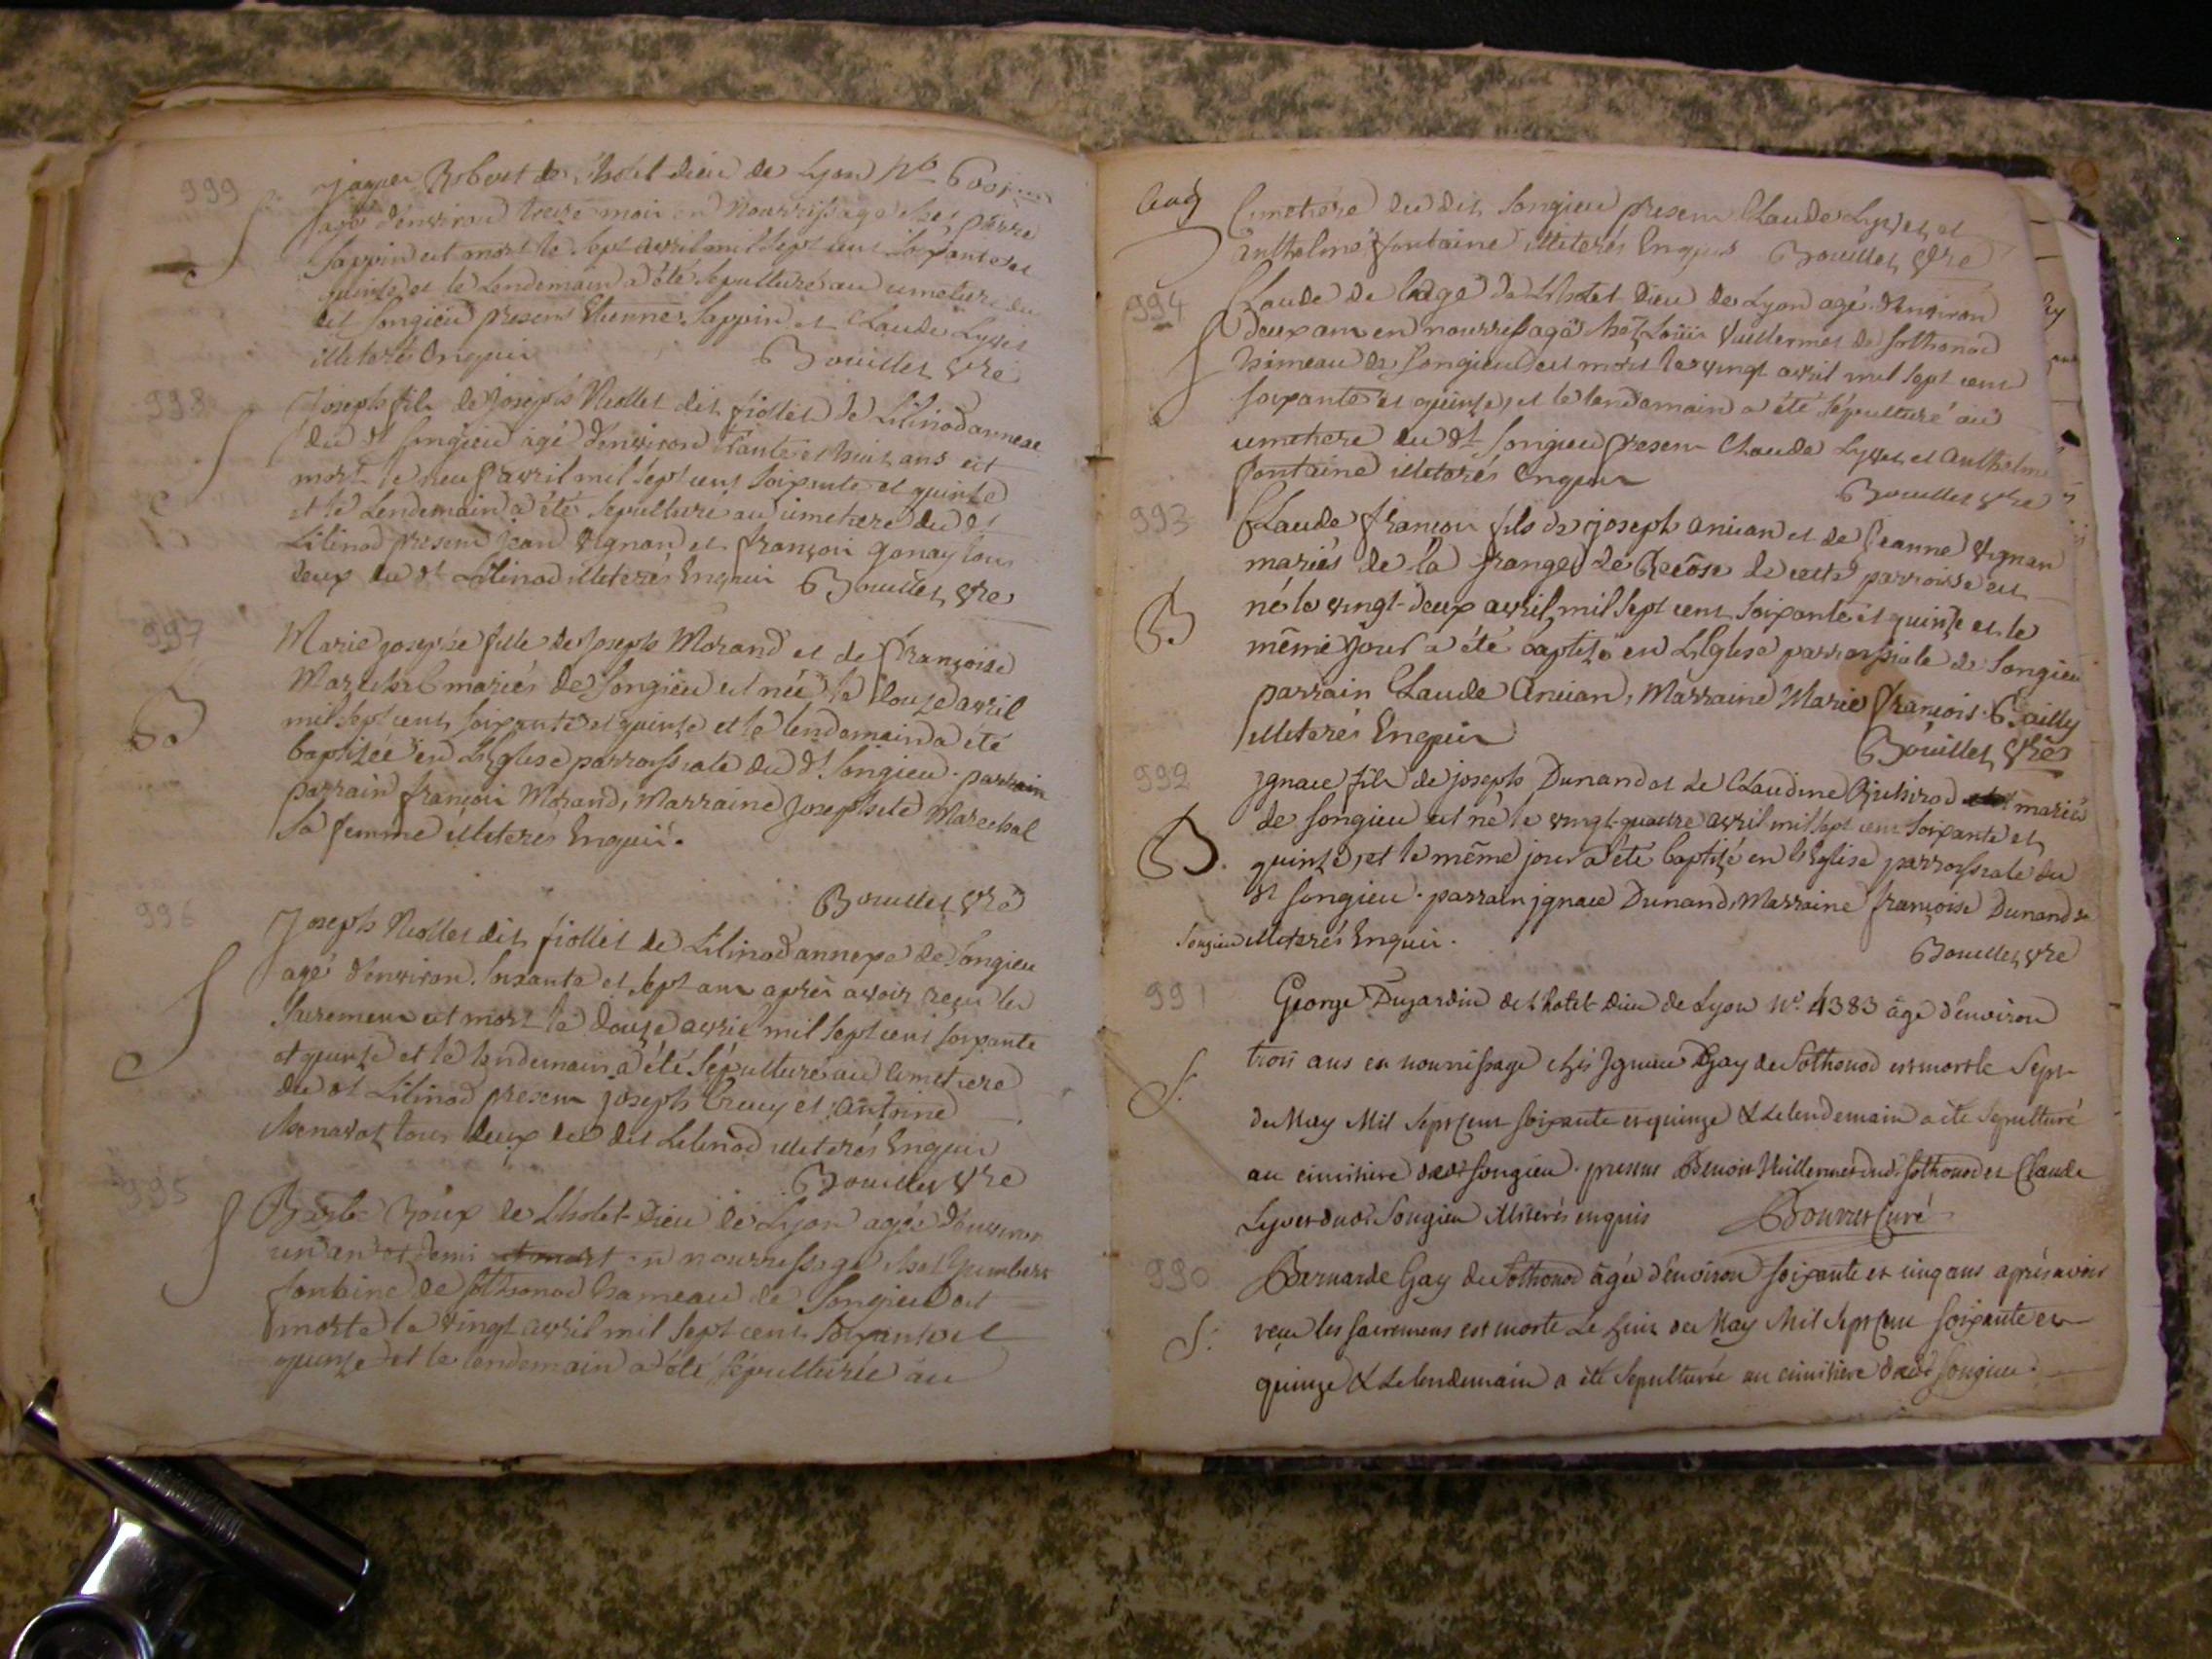 999
Jaques Robert de l'hotel dieu de Lyon No
agé d'environ treize mois en nourrissage chés pierre
Sappin est mort le sept avril mil sept cent soixante et
quinze et le lendemain a été sepulturé au cimetiere du
dit Songieu presens Etienne Sappin et Claude Lyvet
illeterés Enquis Bouillet vre
998
S
Joseph fils de Joseph Niollet dit fiollet de Lilinod annexe
du dt Songieu agé d'environ trante et huit ans est
mort le neuf avril mil sept cent soixante et quinze
et le Lendemain a été sepulturé au cimetiere du dt
Lilinod presens jean Vignan et françois gonay tous
deux du dt Lilinod illeterés Enquis Bouillet vre
997
B
Marie josephe fille de Joseph Morand et de françoise
Marechal mariés de Songieu est née le douze avril
mil sept cent soixante et quinze et le lendemain a été
baptizée en L'Eglise parroissiale du dt Songieu. parrain
parrain françois Morand, Marraine Josephete Marechal
sa femme illeterés Enquis.
Bouillet vre
996
S
Joseph Niollet dit fiollet de Lilinod annexe de Songieu
agé d'environ soixante et sept ans après avoir reçu les
Sacremens est mort le douze avril mil sept cent soixante
et quinze et le lendemain a été sépulturé au cimetiere
du dt Lilinod presens joseph et Antoine
tous deux du dit Lilinod illeterés Enquis
Bouillet vre
995
S
Roux de L'hotel-Dieu de Lyon agée d'environ
un an et demi et mort en nourrissage chés humbert
fontaine de Sothonod hameau de Songieu est
morte le vingt avril mil sept cent soixante et
quinze et le lendemain a été sépulturée au
Cimetiere du dit Songieu presens Claude Lyvet et
anthelme fontaine illeterés Enquis Bouillet vre
994
S
Claude de l'age de L'hotel Dieu de Lyon agé d'environ
deux ans en nourrissage chéz Louis Vuillermet de Sothonod
hameau de Songieu est mort le vingt avril mil sept cent
soixante et quinze, et le lendemain a été sépulturé au
cimetiere du dt Songieu presens Claude Lyvet et Anthelme
fontaine illeterés Enquis
Bouillet vre
993
B
Claude françois fils de joseph anican et de Jeanne Vignan
mariés de la grange de de cette parroisse est
né le vingt-deux avril mil sept cent soixante et quinze et le
même jour a été baptizé en L'Eglise parroissiale de Songieu
parrain Claude Anican, Marraine Marie françoise Bailly
illeterés Enquis
Bouillet vre
992
B.
jgnace fils de joseph Dunand et de Claudine mariés
de Songieu est né le vingt-quattre avril mil sept cent soixante et
quinze, et le même jour a été baptizé en L'Eglise parroissiale du
dt Songieu. parrain jgnace Dunand, Marraine françoise Dunand de
Songieu illeterés Enquis.
Bouillet vre
991
S.
George Dujardin de L'hotel-Dieu de Lyon No. 4383 âgé d'environ
trois ans en nourrissage chés Ignace Gay de Sothonod est mort le Sept
de May Mil Sept Cent soixante et quinze & Le lendemain a été sepulturé
au cimitiere dudt Songieu. presens Benoit Vuillermet dudt Sothonod et Claude
Lyvet dudt Songieu illiterés enquis Bouvret Curé
990
S.
Bernarde Gay de Sothonod âgée d'environ soixante et cinq ans aprés avoir
reçu les sacremens est morte Le huit de May Mil Sept Cent soixante et
quinze & Le lendemain a été sepulturée au cimitiere dudt Songieu.